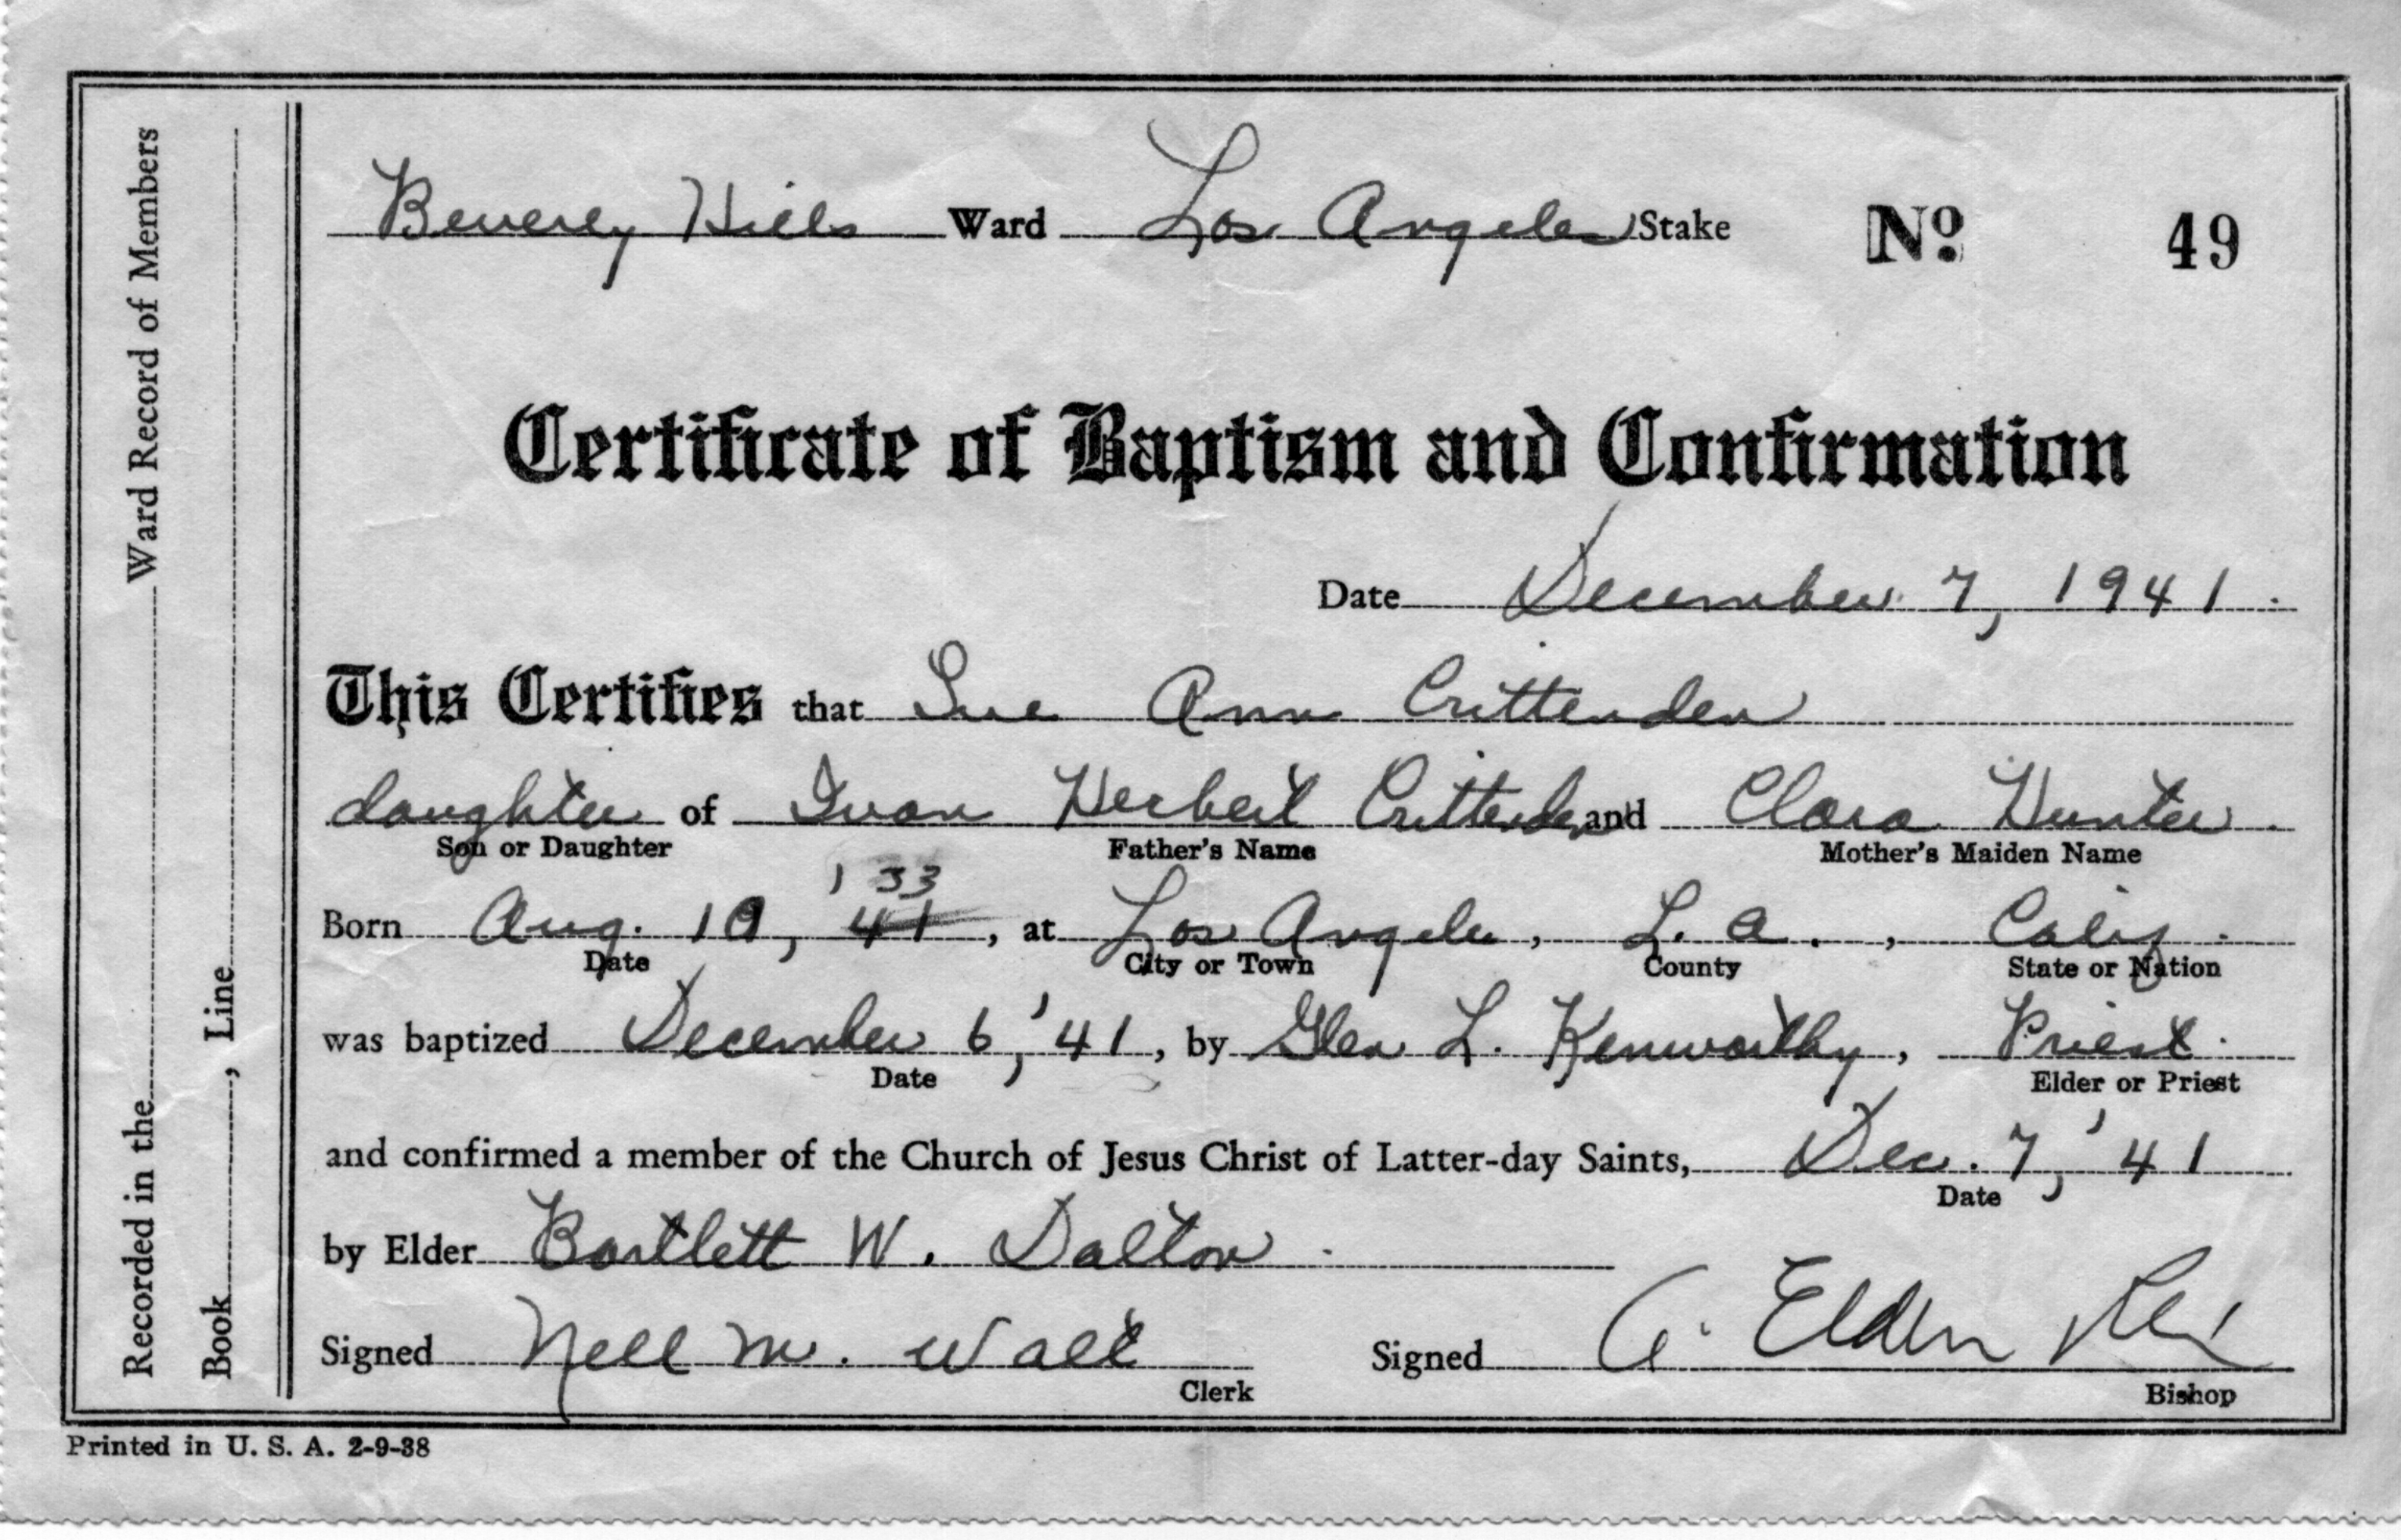 Beverly Hills Ward Los Angeles Stake No 49
Certificate of Baptism and Confirmation
Date December 7, 1941.
This Certifies that Sue Ann Crittenden
daughter of Ivan Herbert Crittenden and Clara Hunter.
Son or Daughter Father's Name Mother's Maiden Name
'33
Born Aug. 19, 41, at Los Angeles, L. A., Calif.
Date City or Town County State or Nation
was baptized December 6, '41, by Glen L. Kenworthy, Priest.
Date Elder or Priest
and confirmed a member of the Church of Jesus Christ of Latter-day Saints, Dec. 7, '41
Date
by Elder Bartlett W. Dalton.
Signed Nell M. Walt Signed A. Elden
Clerk Bishop
Recorded in the Ward Record of Members
Book, Line
Printed in U. S. A. 2-9-38